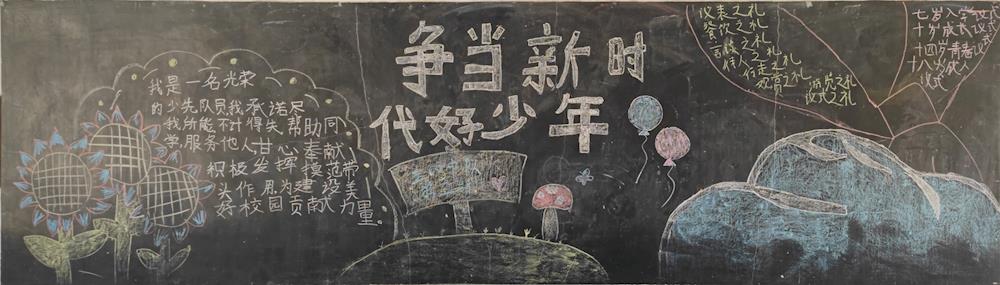 我是一名光荣
的少先队员我承诺尽
我所能不计得失帮助同
学服务他人甘心奉献
积极发挥模范带
头作用为建设美
好校园贡献力量
争当新时
代好少年
仪表之礼
餐饮之礼
言谈之礼
待人之礼
行走之礼
观赏之礼
游览之礼
仪式之礼
七岁入学仪式
十岁成长仪式
十四岁青春仪式
十八岁成人仪式